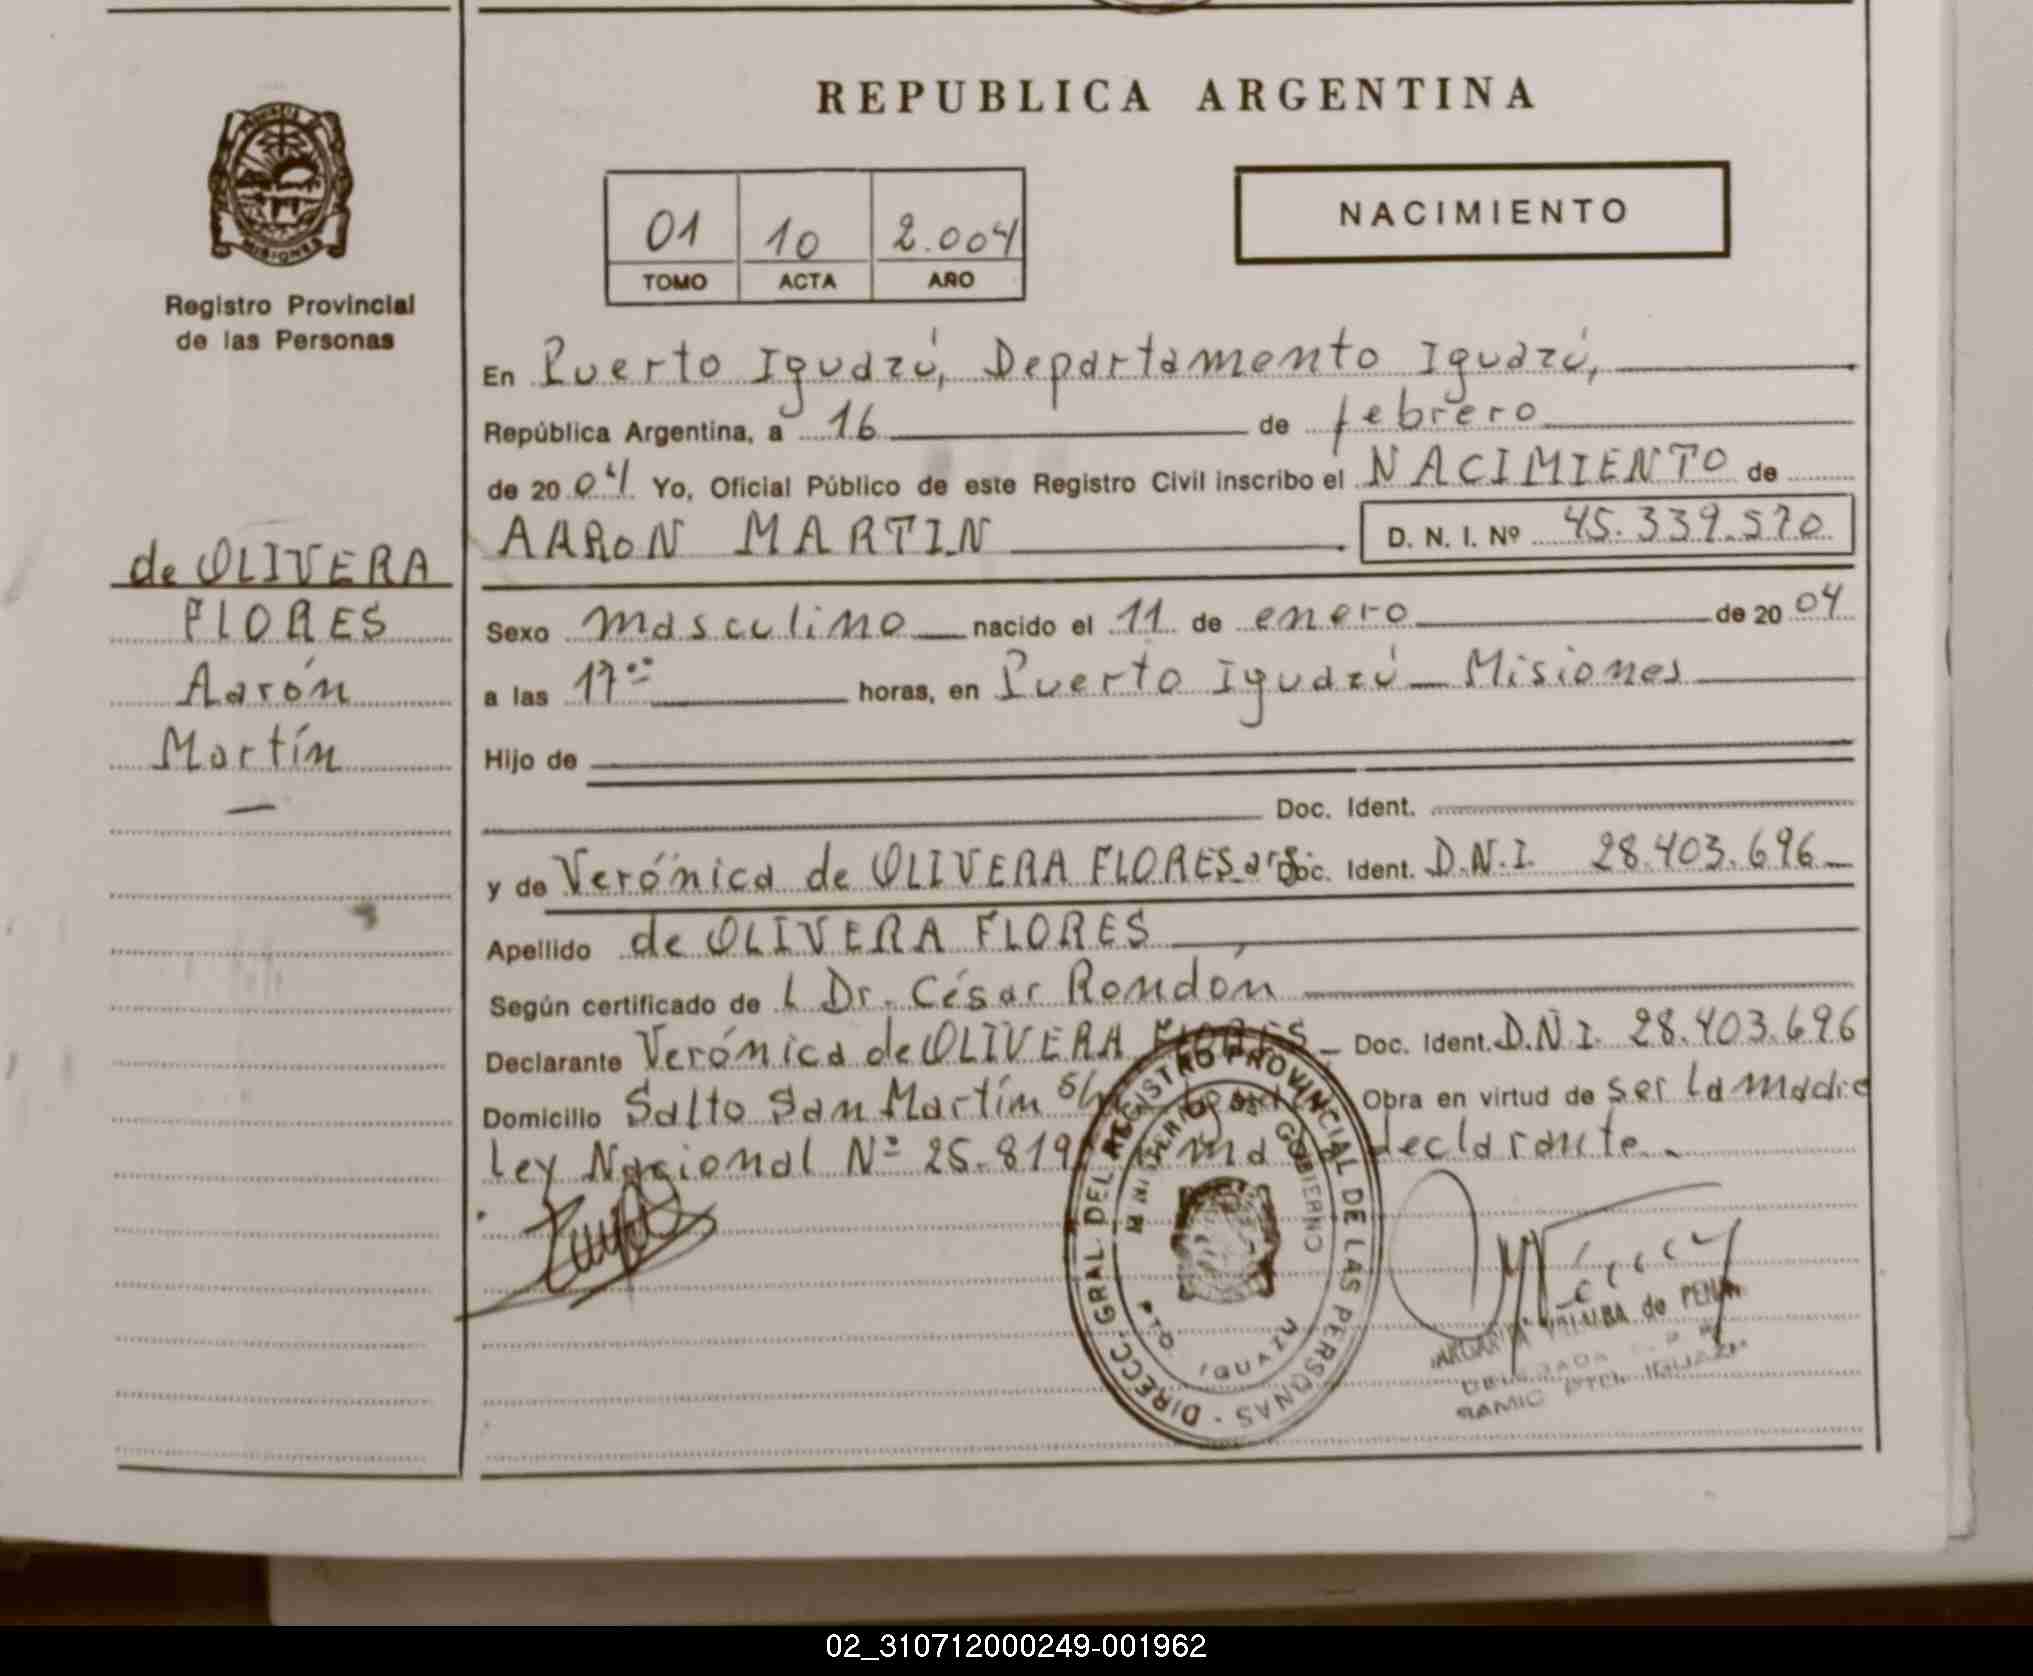 REPUBLICA ARGENTINA
MISIONES
Registro Provincial
de las Personas
01 10 2.004
TOMO ACTA AÑO
NACIMIENTO
de OLIVERA
FLORES
Aarón
Martín
En Puerto Iguazú, Departamento Iguazú,
República Argentina, a 16 de febrero
de 2004 Yo, Oficial Público de este Registro Civil inscribo el NACIMIENTO de
AARON MARTIN D. N. I. Nº 45.339.570
Sexo masculino nacido el 11 de enero de 2004
a las 17 horas, en Puerto Iguazú - Misiones
Hijo de
Doc. Ident.
y de Verónica de OLIVERA FLORES arg Doc. Ident. D.N.I. 28.403.696
Apellido de OLIVERA FLORES
Según certificado de l Dr. César Rondón
Declarante Verónica de OLIVERA FLORES Doc. Ident. D.N.I. 28.403.696
Domicilio Salto San Martín Obra en virtud de ser la madre
Ley Nacional Nº 25.819 declarante.
DIRECC. GRAL. DEL REGISTRO PROVINCIAL DE LAS PERSONAS
MINISTERIO DE GOBIERNO
PTO. IGUAZU
VILLALBA de PEÑA
DELEGADA
SAMIC PTO. IGUAZU
02_310712000249-001962